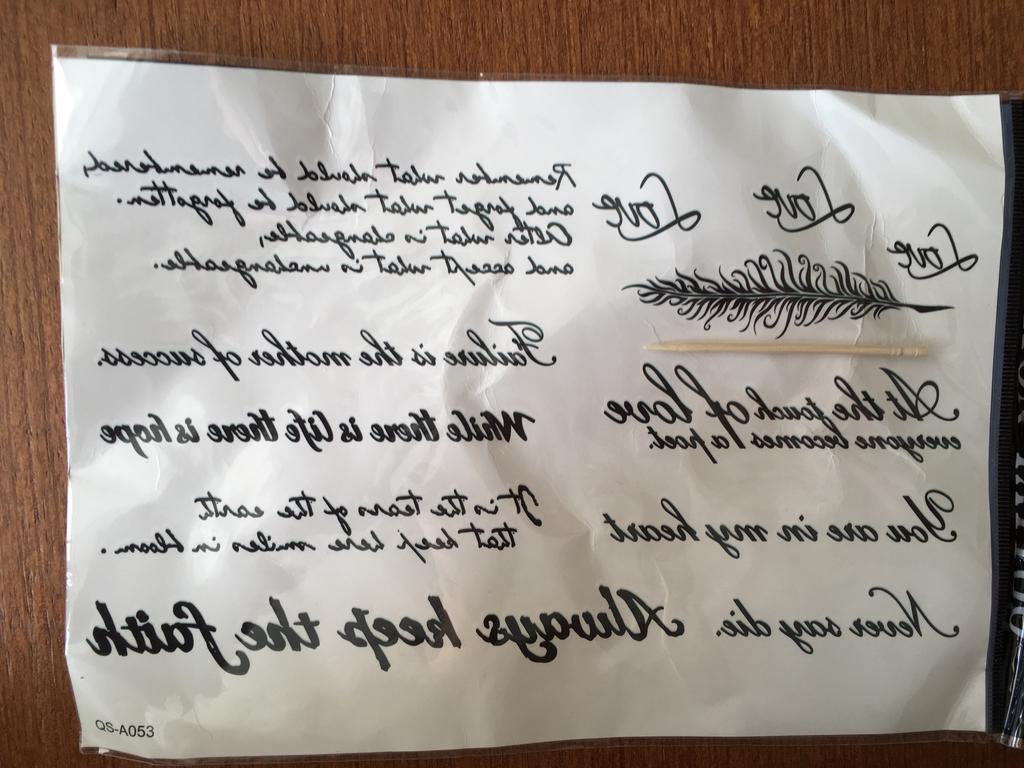 Love
Love
Love
Remember what should be remembered,
and forget what should be forgotten.
Alter what is changeable,
and accept what is unchangeable.
Failure is the mother of success.
At the touch of love
everyone becomes a poet.
While there is life there is hope
You are in my heart
It is the tears of the earth
that keep here smiles in bloom.
Never say die.
Always keep the faith
QS-A053